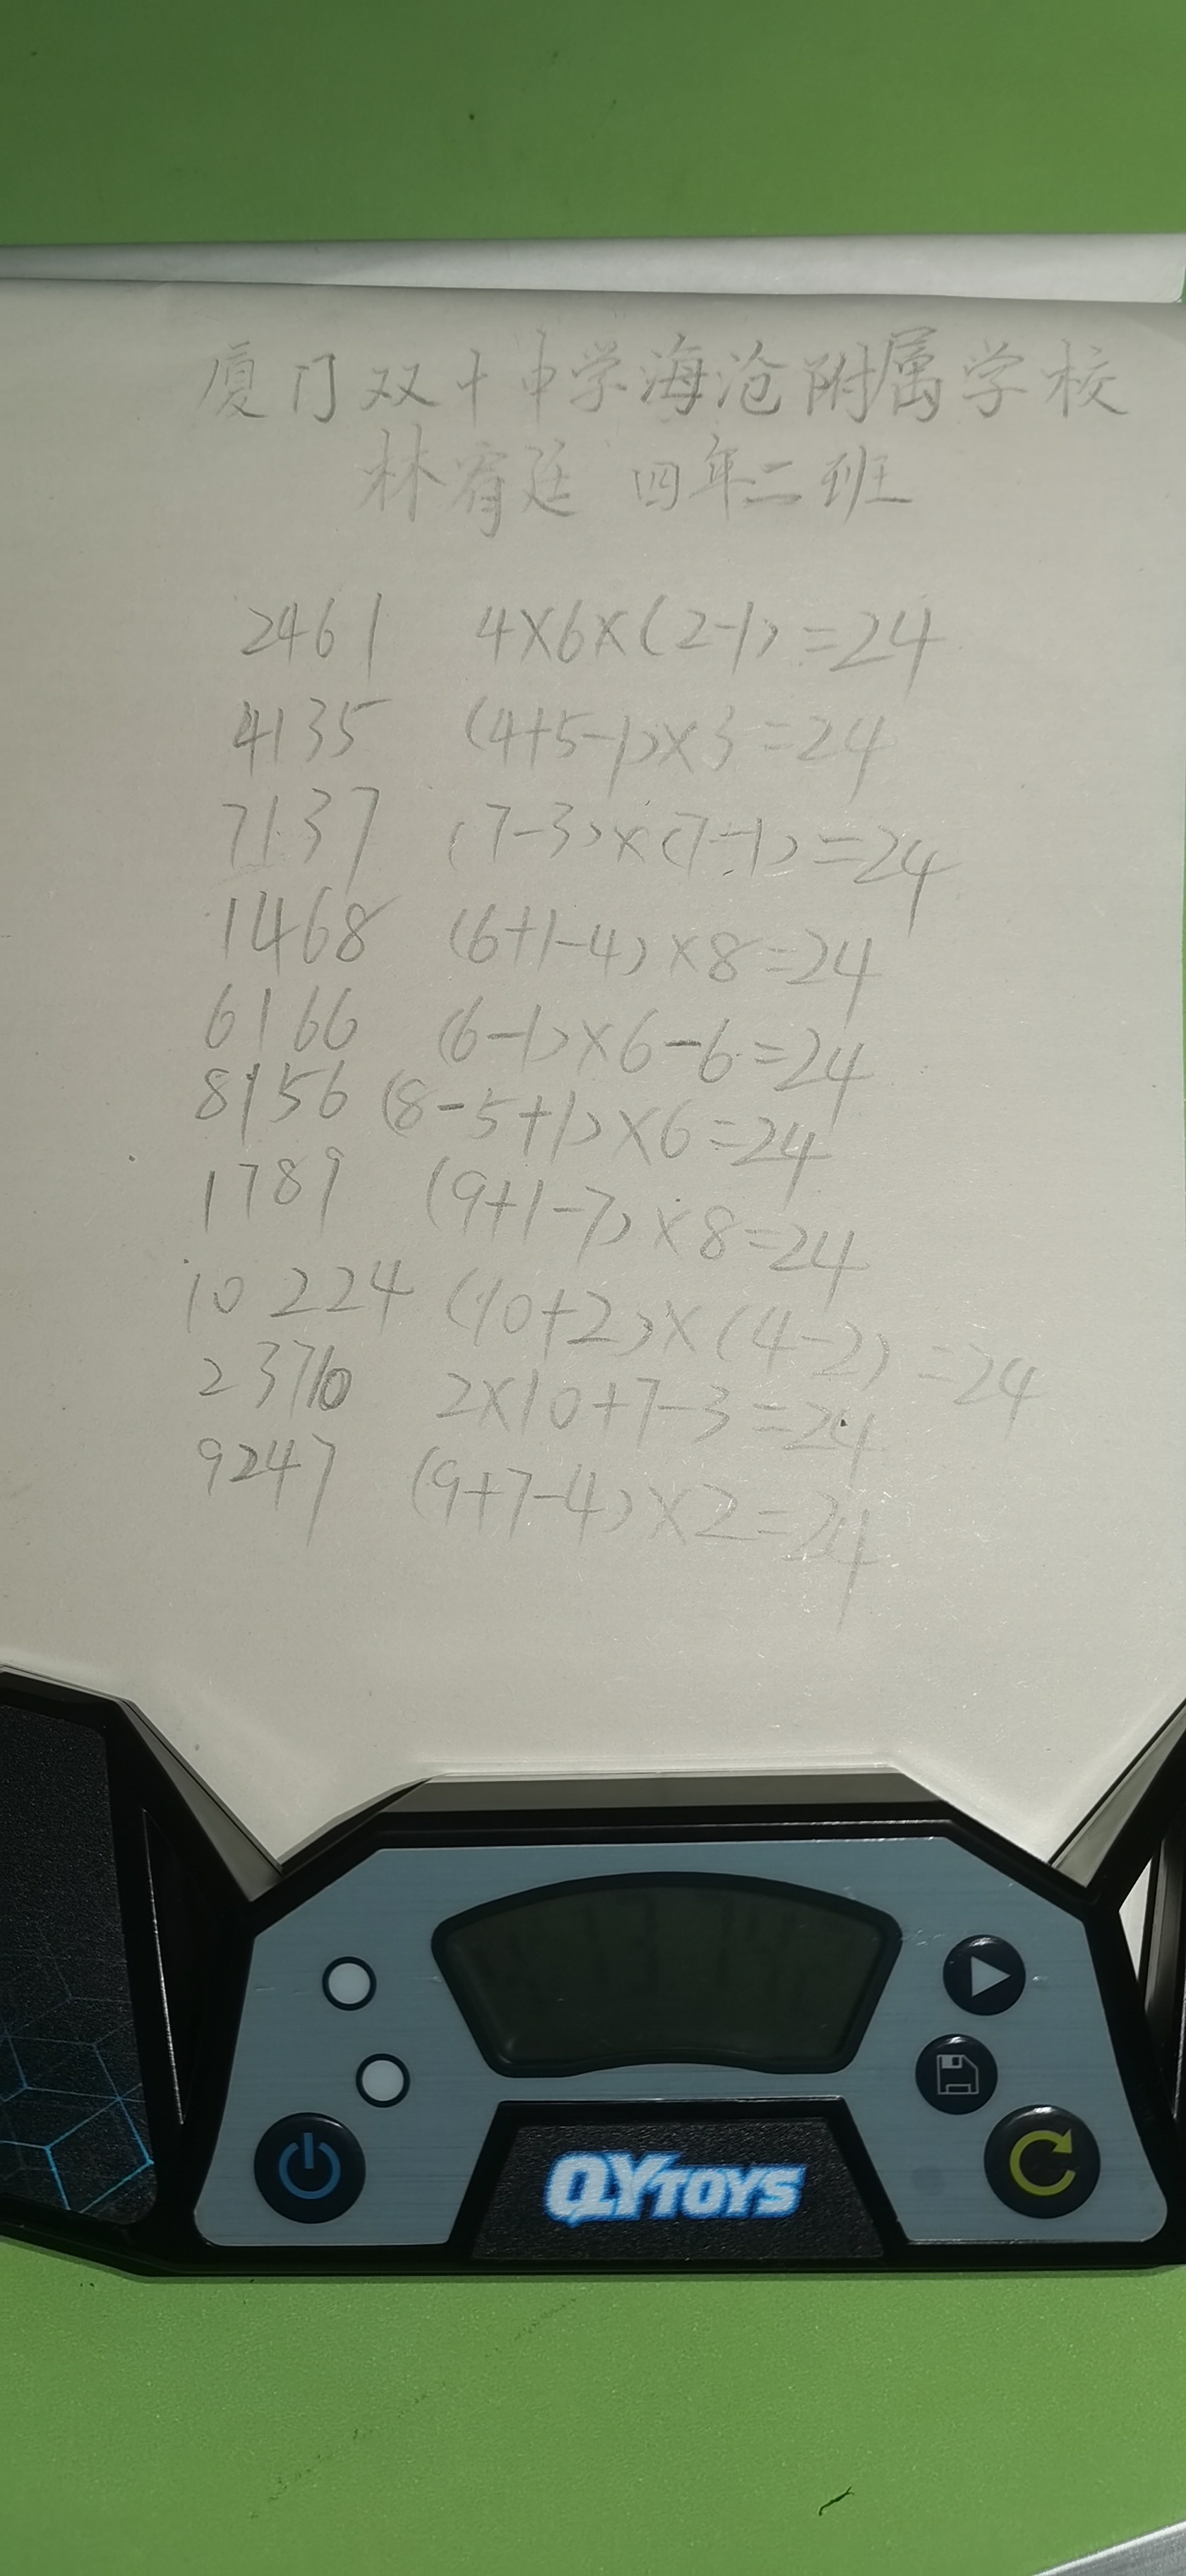 厦门双十中学海沧附属学校
林宥廷 四年二班
2461 4×6×(2-1)=24
4135 (4+5-1)×3=24
7137 (7-3)×(7-1)=24
1468 (6+1-4)×8=24
6166 (6-1)×6-6=24
8156 (8-5+1)×6=24
1789 (9+1-7)×8=24
10 224 (10+2)×(4-2)=24
23710 2×10+7-3=24
9247 (9+7-4)×2=24
QYTOYS